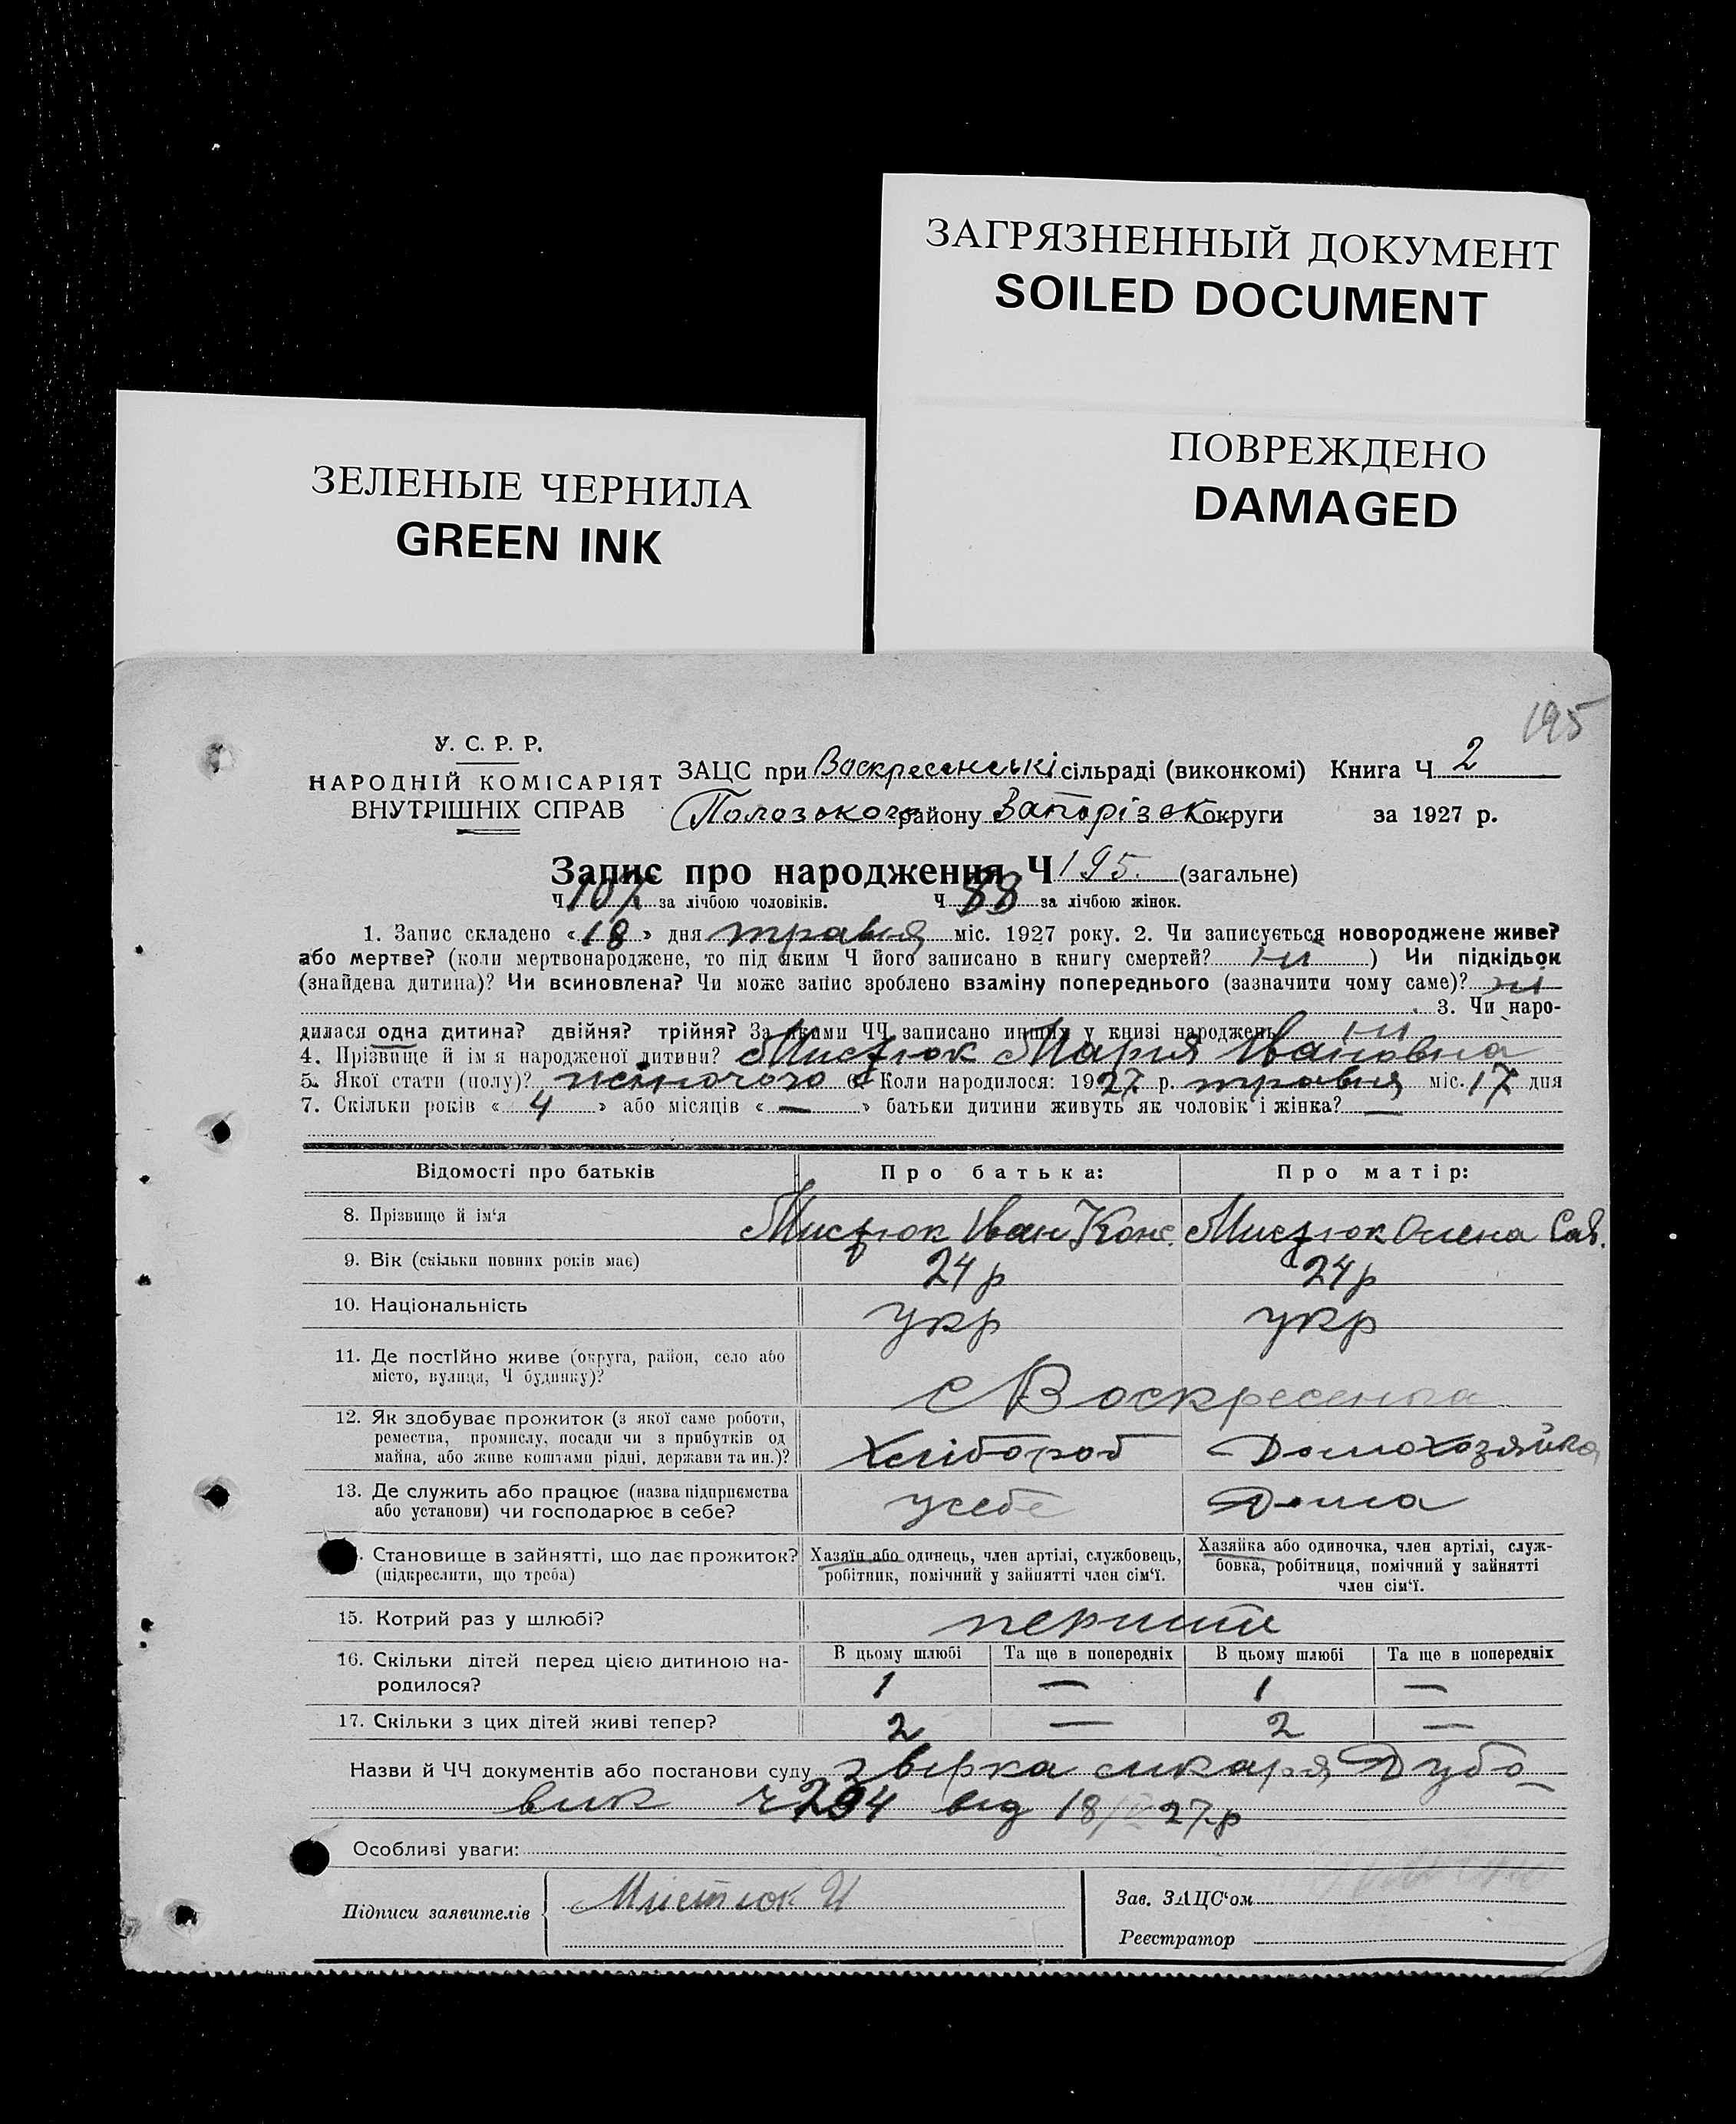 ЗАГРЯЗНЕННЫЙ ДОКУМЕНТ
SOILED DOCUMENT
ПОВРЕЖДЕНО
DAMAGED
ЗЕЛЕНЫЕ ЧЕРНИЛА
GREEN INK
195
У. С. Р. Р.
НАРОДНІЙ КОМІСАРІЯТ
ВНУТРІШНІХ СПРАВ
ЗАЦС при Воскресенські сільраді (виконкомі) Книга Ч 2
Пологзького району Запорізьк округи за 1927 р.
Запис про народження Ч 195. (загальне)
Ч 107 за лічбою чоловіків. Ч 88 за лічбою жінок.
1. Запис складено «18» дня травня міс. 1927 року. 2. Чи записується новороджене живе?
або мертве? (коли мертвонароджене, то під яким Ч його записано в книгу смертей? ні ) Чи підкідьок
(знайдена дитина)? Чи всиновлена? Чи може запис зроблено взаміну попереднього (зазначити чому саме)? ні
. 3. Чи наро-
дилася одна дитина? двійня? трійня? За якими ЧЧ записано инших у книзі народжень ні
4. Прізвище й ім'я народженої дитини? Мистюк Мария Івановна
5. Якої стати (полу)? жіночого 6. Коли народилося: 1927 р. травня міс. 17 дня
7. Скільки років «4» або місяців «—» батьки дитини живуть як чоловік і жінка? —
Відомості про батьків Про батька: Про матір:
8. Прізвище й ім'я Мистюк Іван Конс. Мистюк Олена Сав.
9. Вік (скільки повних років має) 24 р 24 р
10. Національність укр укр
11. Де постійно живе (округа, район, село або
місто, вулиця, Ч будинку)?
с Воскресенка
12. Як здобуває прожиток (з якої саме роботи,
ремества, промислу, посади чи з прибутків од
майна, або живе коштами рідні, держави та ин.)? Хлібороб Домохозяйка
13. Де служить або працює (назва підприємства
або установи) чи господарює в себе? усебе Дома
. Становище в зайнятті, що дає прожиток?
(підкреслити, що треба)
Хазяїн або одинець, член артілі, службовець,
робітник, помічний у зайнятті член сім'ї.
Хазяйка або одиночка, член артілі, служ-
бовка, робітниця, помічний у зайнятті
член сім'ї.
15. Котрий раз у шлюбі? перший
16. Скільки дітей перед цією дитиною на-
родилося?
В цьому шлюбі Та ще в попередніх В цьому шлюбі Та ще в попередніх
1 — 1 —
17. Скільки з цих дітей живі тепер? 2 — 2 —
Назви й ЧЧ документів або постанови суду лікаря Дубо
вик ч 234 від 18/V 27 р
Особливі уваги:
Підписи заявителів Мистюк И
Зав. ЗАЦС'ом
Реєстратор